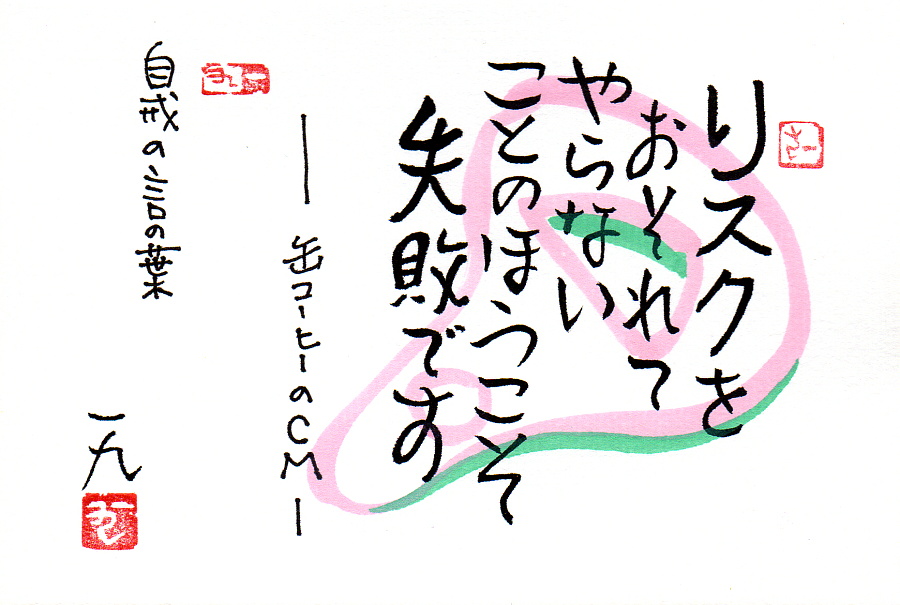 リスクを
おそれて
やらない
ことのほうこそ
失敗です
― 缶コーヒーのCM ―
自戒の言の葉
一九